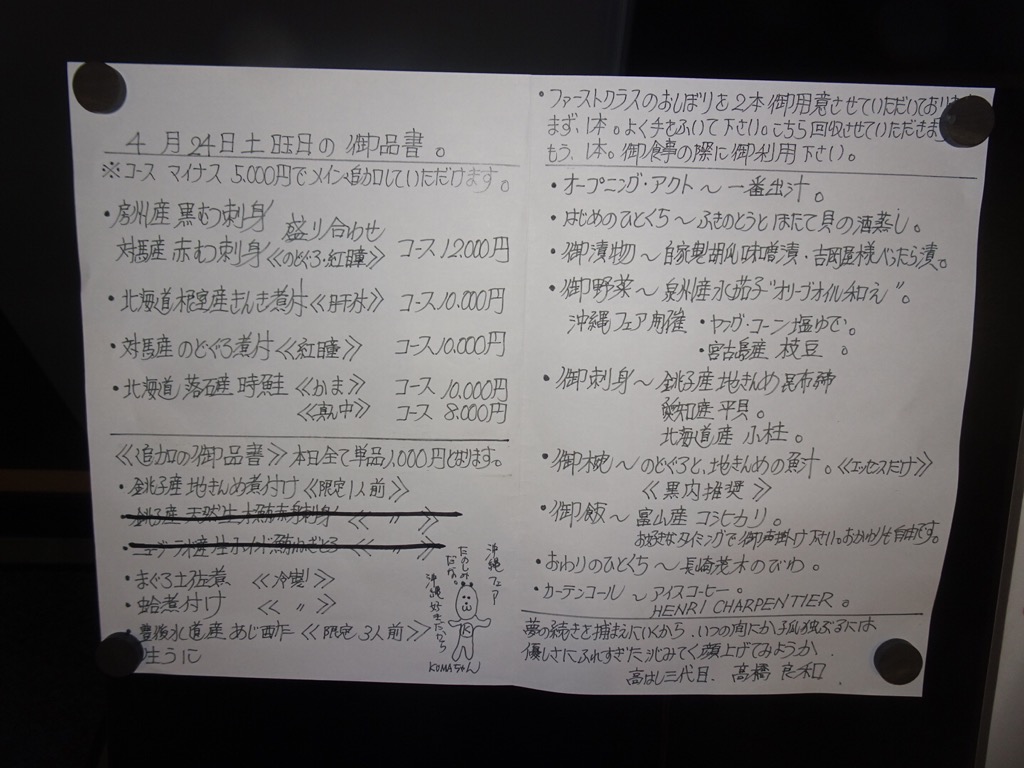 4月24日土曜日の御品書。
※コース マイナス 5.000円でメインへ追加していただけます。
・房州産 黒むつ刺身 盛り合わせ
対馬産 赤むつ刺身≪のどぐろ・紅瞳≫ コース12.000円
・北海道 根室産きんき煮付≪肝付≫ コース10.000円
・対馬産 のどぐろ煮付≪紅瞳≫ コース10.000円
・北海道 落石産 時鮭 ≪かま≫ コース 10.000円
≪真中≫ コース 8.000円
≪追加の御品書≫本日全て単品1.000円となります。
・銚子産 地きんめ煮付け≪限定1人前≫
銚子産 天然生本鮪赤身刺身 ≪ 〃 ≫
・まぐろ土佐煮 ≪冷製≫
・蛤煮付け ≪ 〃 ≫
・豊後水道産 あじ酢 ≪限定3人前≫
生うに
沖縄フェア
たのしみだな。
沖縄好きだから
KUMAちゃん
・ファーストクラスのおしぼりを2本御用意させていただいており
まず、1本。よく手をふいて下さい。こちら回収させていただきま
もう、1本。御食事の際に御利用下さい。
・オープニング・アクト～一番出汁。
・はじめのひとくち～ふきのとうとほたて貝の酒蒸し。
・御漬物～自家製胡瓜味噌漬・吉岡屋様べったら漬。
・御野菜～泉州産水茄子"オリーブオイル和え"。
沖縄フェア開催 ・ヤング・コーン塩ゆで。
・宮古島産 枝豆 。
・御刺身～銚子産地きんめ昆布締
愛知産 平貝。
北海道産 小柱。
・御椀～のどぐろと、地きんめの魚汁。≪エッセンスだけ≫
≪黒内推奨≫
・御飯～富山産 コシヒカリ。
お好きなタイミングで御声掛け下さい。おかわりも自由です。
・おわりのひとくち～長崎茂木のびわ。
・カーテンコール～アイスコーヒー。
HENRI CHARPENTIER。
夢の続きを捕まえにいくから、いつの間にか孤独ぶるには
優しさにふれすぎた 沁みてく 顔上げてみようか
高はし三代目. 高橋 良和.